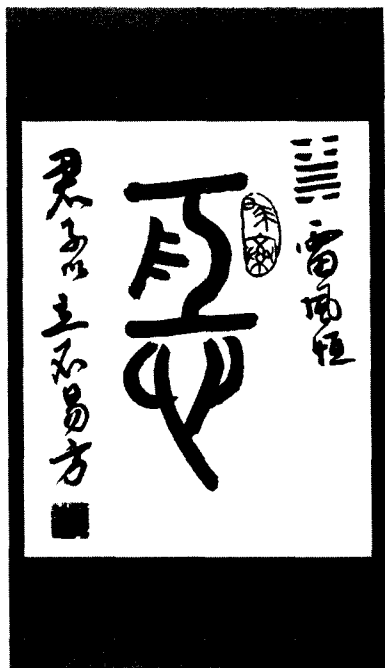 雷風恒
恆
君子以立不易方